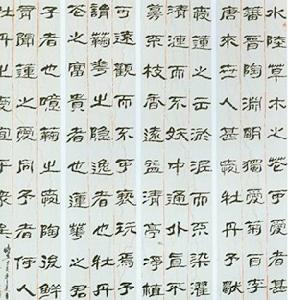 水陸草木之花可愛者甚
蕃晉陶淵明獨愛菊自李
唐來世人甚愛牡丹予獨
愛蓮之出淤泥而不染濯
清漣而不妖中通外直不
蔓不枝香遠益清亭亭淨植
可遠觀而不可褻玩焉予
謂菊花之隱逸者也牡丹
花之富貴者也蓮花之君
子者也噫菊之愛陶後鮮
有聞蓮之愛同予者何人
牡丹之愛宜乎眾矣